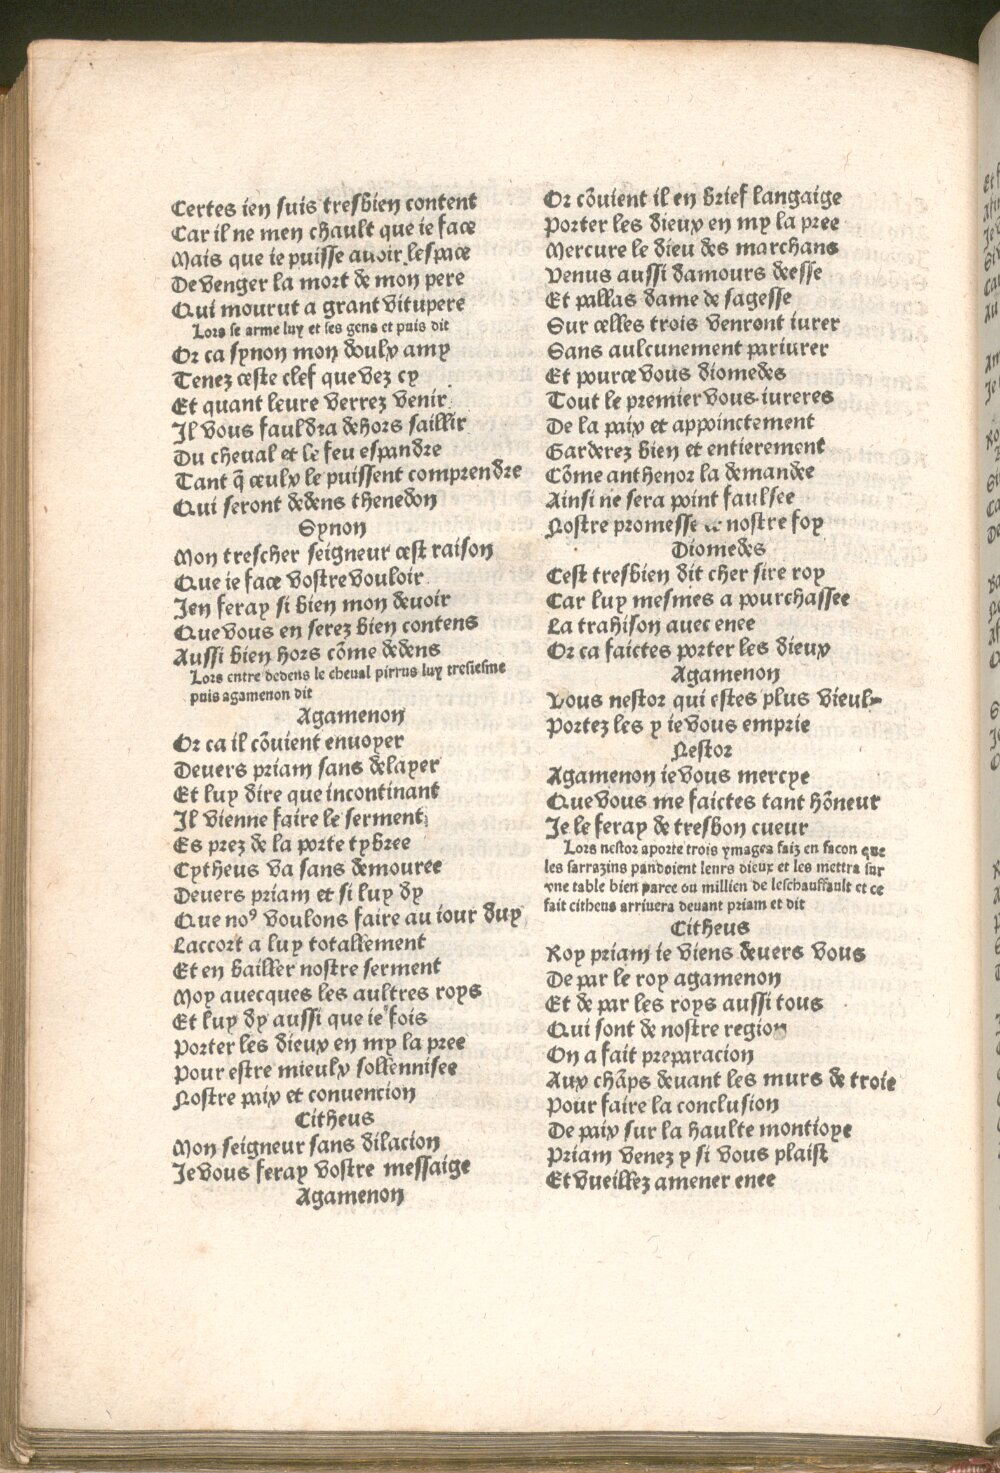 Certes ien suis tresbien content
Car il ne men chault que ie face
Mais que ie puisse auoir lespace
De venger la mort de mon pere
Qui mourut a grant vitupere
Lors se arme luy et ses gens et puis dit
Or ca synon mon doulx amy
Tenez ceste clef que vez cy
Et quant leure verrez venir
Il vous fauldra dehors saillir
Du cheual et le feu espandre
Tant q̃ ceulx le puissent comprendre
Qui seront dedens thenedon
Synon
Mon trescher seigneur cest raison
Que ie face vostre vouloir
Jen feray si bien mon deuoir
Que vous en serez bien contens
Aussi bien hors cõme dedens
Lors entre dedens le cheual pirrus luy tresiesme
puis agamenon dit
Agamenon
Or ca il cõuient enuoyer
Deuers priam sans delayer
Et luy dire que incontinant
Il vienne faire le serment
Es prez de la porte tybree
Cytheus va sans demouree
Deuers priam et si luy dy
Que noꝰ voulons faire au iour duy
Laccort a luy totallement
Et en bailler nostre serment
Moy auecques les aultres roys
Et luy dy aussi que ie fois
Porter les dieux en my la pree
Pour estre mieulx sollennisee
Nostre paix et conuencion
Citheus
Mon seigneur sans dilacion
Je vous feray vostre messaige
Agamenon
Or cõuient il en brief langaige
Porter les dieux en my la pree
Mercure le dieu des marchans
Venus aussi damours deesse
Et pallas dame de sagesse
Sur celles trois venront iurer
Sans aulcunement pariurer
Et pource vous diomedes
Tout le premier vous iureres
De la paix et appoinctement
Garderez bien et entierement
Cõme anthenor la demandee
Ainsi ne sera point faulsee
Nostre promesse ⁊ nostre foy
Diomedes
Cest tresbien dit cher sire roy
Car luy mesmes a pourchassee
La trahison auec enee
Or ca faictes porter les dieux
Agamenon
Vous nestor qui estes plus vieulx
Portez les y ie vous emprie
Nestor
Agamenon ie vous mercye
Que vous me faictes tant hõneur
Je le feray de tresbon cueur
Lors nestor aporte trois ymages faiz en facon que
les sarrazins pandoient leurs dieux et les mettra sur
vne table bien paree ou millieu de leschauffault et ce
fait citheus arriuera deuant priam et dit
Citheus
Roy priam ie viens deuers vous
De par le roy agamenon
Et de par les roys aussi tous
Qui sont de nostre region
On a fait preparacion
Aux chãps deuant les murs de troie
Pour faire la conclusion
De paix sur la haulte montioye
Priam venez y si vous plaist
Et vueillez amener enee